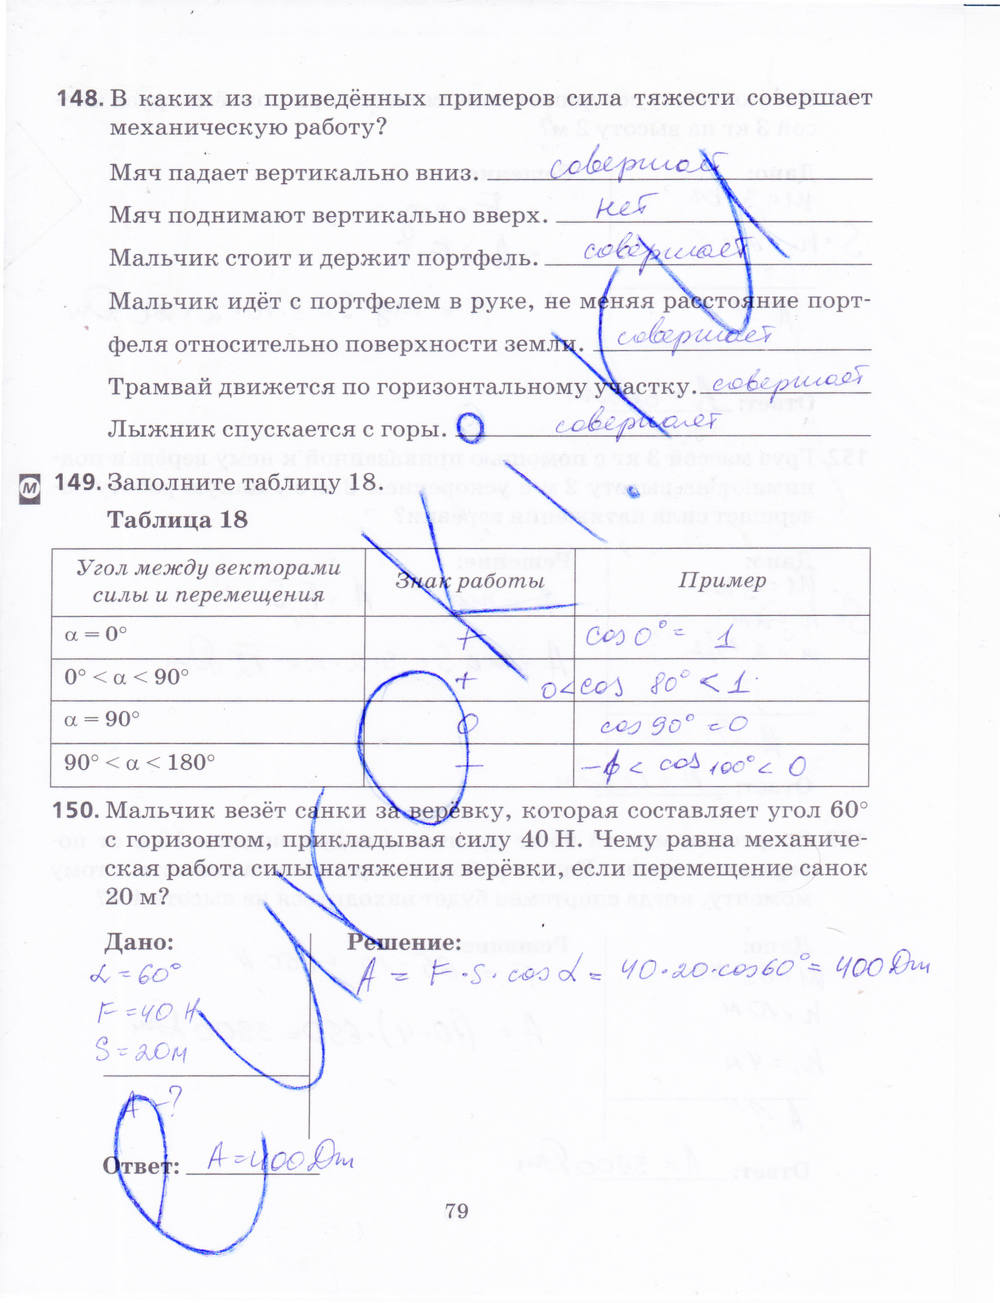 148. В каких из приведённых примеров сила тяжести совершает
механическую работу?
Мяч падает вертикально вниз. совершает
Мяч поднимают вертикально вверх. нет
Мальчик стоит и держит портфель. совершает
Мальчик идёт с портфелем в руке, не меняя расстояние порт-
феля относительно поверхности земли. совершает
Трамвай движется по горизонтальному участку. совершает
Лыжник спускается с горы. совершает
М 149. Заполните таблицу 18.
Таблица 18
Угол между векторами силы и перемещения Знак работы Пример
α = 0° + cos 0° = 1
0° < α < 90° + 0 < cos 80° < 1
α = 90° 0 cos 90° = 0
90° < α < 180° − −1 < cos 100° < 0
150. Мальчик везёт санки за верёвку, которая составляет угол 60°
с горизонтом, прикладывая силу 40 Н. Чему равна механиче-
ская работа силы натяжения верёвки, если перемещение санок
20 м?
Дано: Решение:
α = 60° A = F · S · cos α = 40 · 20 · cos 60° = 400 Дж
F = 40 Н
S = 20 м
A − ?
Ответ: A = 400 Дж
79